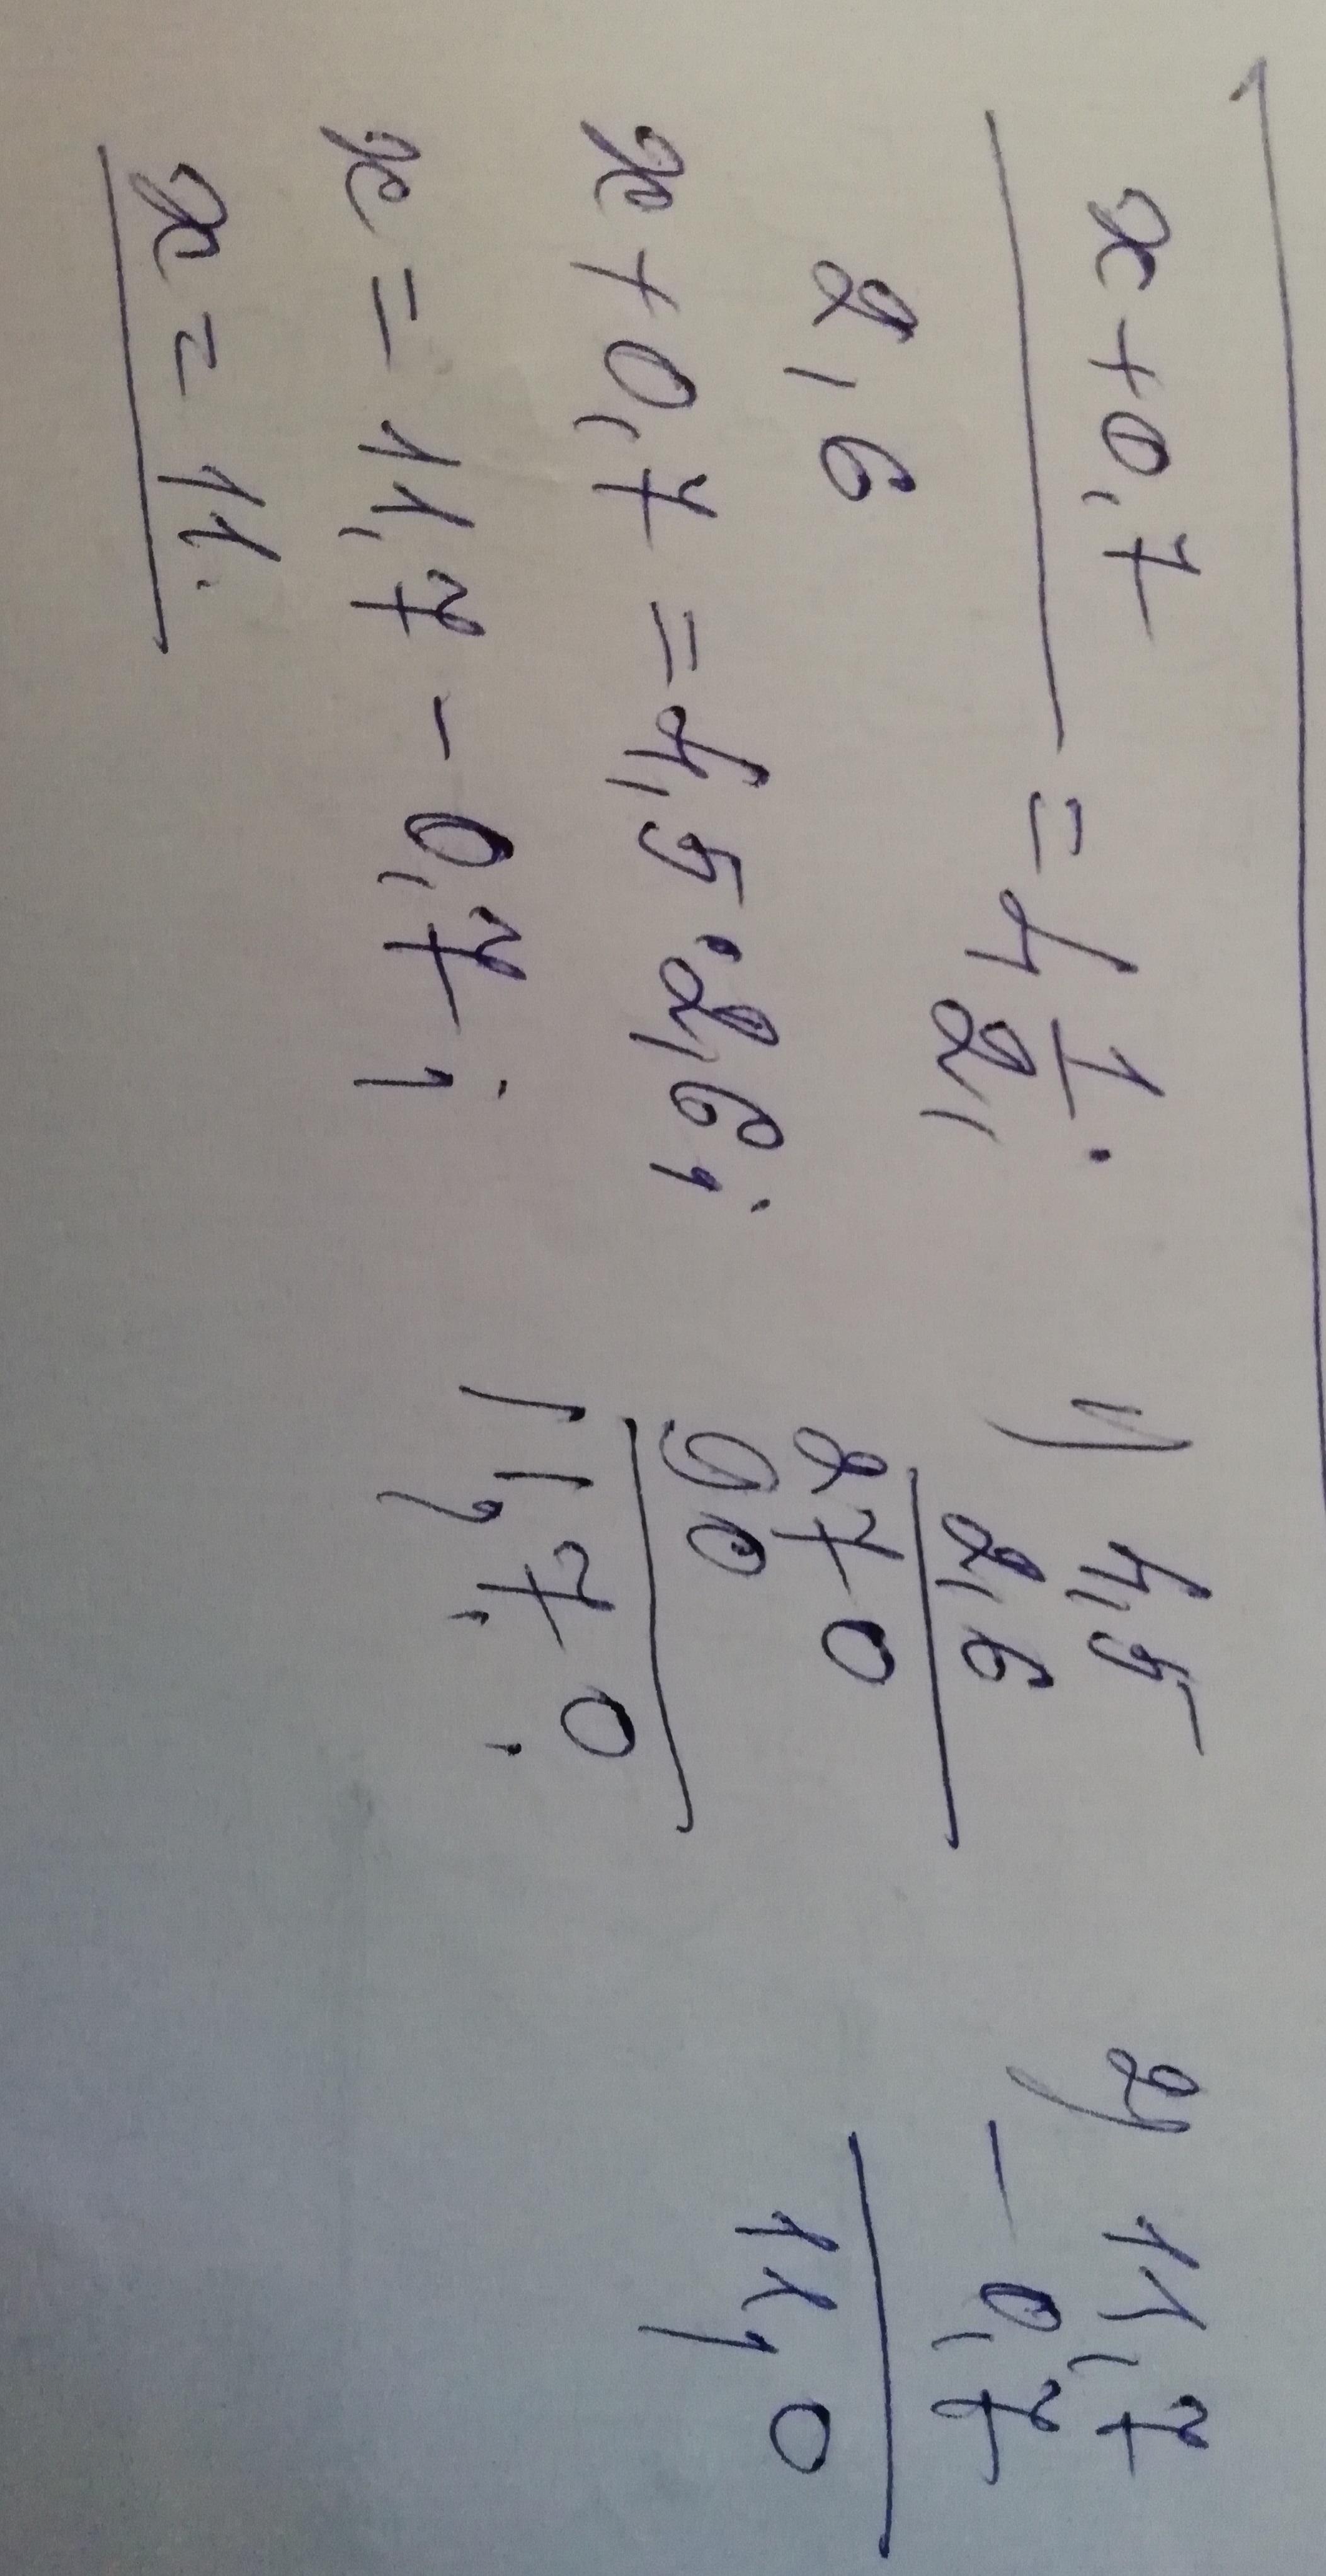 x + 0,7
= 4 1/2;
2,6
x + 0,7 = 4,5 · 2,6;
x = 11,7 - 0,7;
x = 11.
1) 4,5
2,6
270
90
11,70.
2) 11,7
- 0,7
11,0